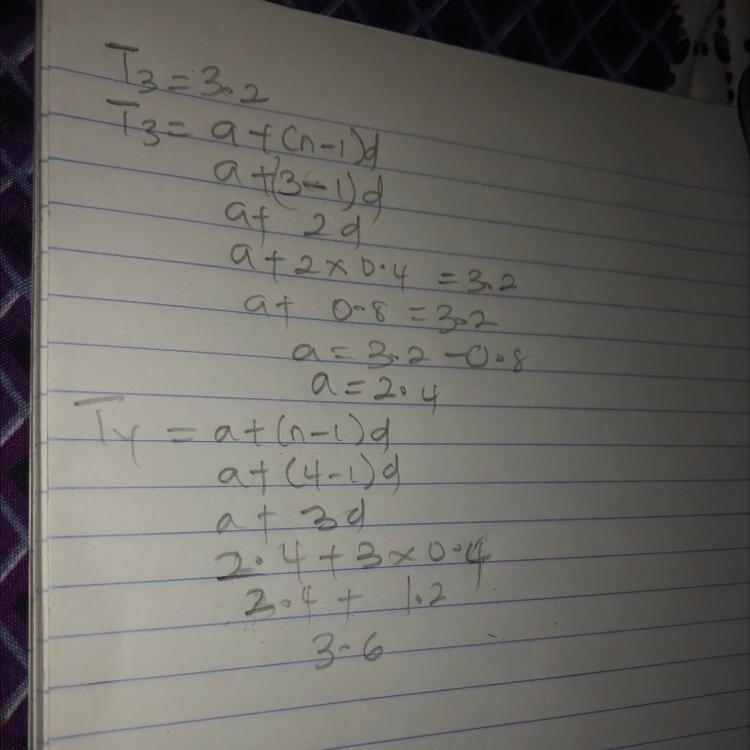 T3 = 3.2
T3 = a+(n-1)d
a+(3-1)d
a+ 2d
a+2×0.4 = 3.2
a+ 0.8 = 3.2
a = 3.2 - 0.8
a = 2.4
T4 = a+(n-1)d
a+(4-1)d
a+ 3d
2.4+3×0.4
2.4+ 1.2
3.6